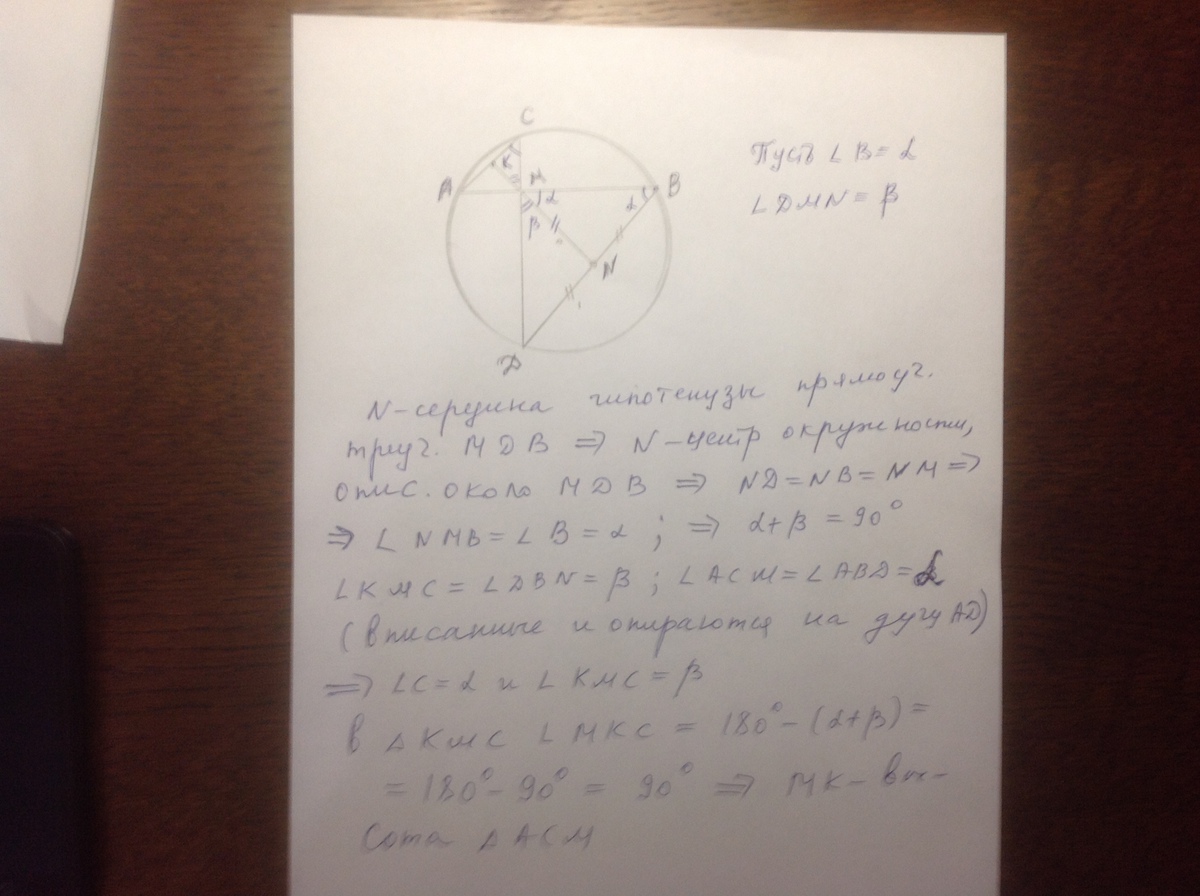 C
Пусть ∠ B = α
∠ DMN = β
A K M α α B
β
N
D
N - середина гипотенузы прямоуг.
треуг. MDB ⇒ N - центр окружности,
опис. около MDB ⇒ ND = NB = NM ⇒
⇒ ∠ NMB = ∠ B = α ; ⇒ α + β = 90°
∠ KMC = ∠ DBN = β ; ∠ ACM = ∠ ABD = α
(вписанные и опираются на дугу AD)
⇒ ∠C = α и ∠ KMC = β
В △ KMC ∠ MKC = 180° - (α + β) =
= 180° - 90° = 90° ⇒ MK - вы-
сота △ ACM